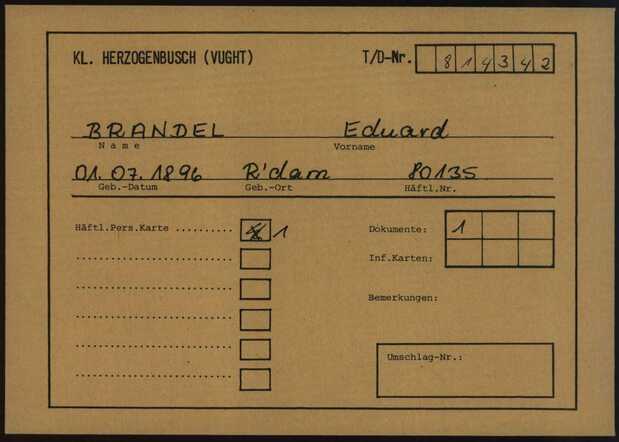 KL. HERZOGENBUSCH (VUGHT) T/D-Nr. 814342
BRANDEL Eduard
Name Vorname
01.07.1896 R'dam 80135
Geb.-Datum Geb.-Ort Häftl.Nr.
Häftl.Pers.Karte .......... 1 Dokumente: 1
Inf.Karten:
Bemerkungen:
Umschlag-Nr.: